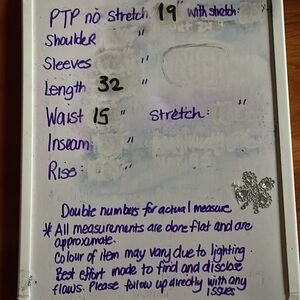 PTP no stretch: 19" with stretch:
Shoulder "
Sleeves "
Length 32 "
Waist 15 " Stretch: "
Inseam "
Rise:
Double numbers for actual measure
* All measurements are done flat and are
approximate.
Colour of item may vary due to lighting.
Best effort made to find and disclose
flaws. Please follow up directly with any
issues